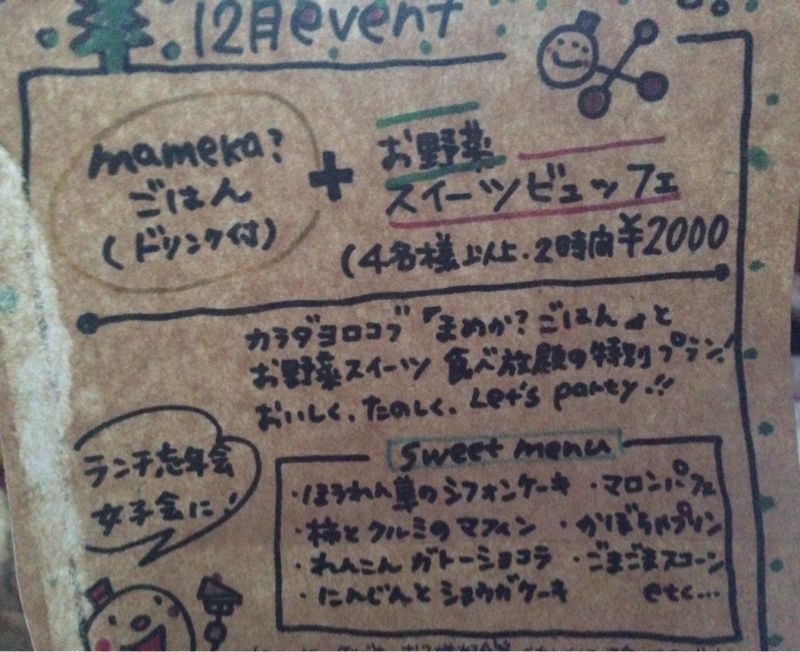 12月event
mameka?
ごはん
(ドリンク付)
+
お野菜
スイーツビュッフェ
(4名様以上・2時間 ¥2000
カラダヨロコブ「まめか?ごはん」と
お野菜スイーツ 食べ放題の特別プラン!
おいしく、たのしく、Let's party!!
ランチ忘年会
女子会に!
sweet menu
・ほうれん草のシフォンケーキ ・マロンパフェ
・柿とクルミのマフィン ・かぼちゃプリン
・れんこん ガトーショコラ ・ごまごまスコーン
・にんじんとショウガケーキ etc...